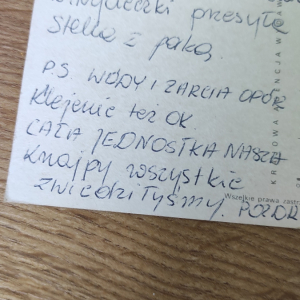 przesyła
Stella z paką.
P.S. WODY I ŻARCIA OPÓR
Klejenie też OK.
CAŁA JEDNOSTKA NASZA
Knajpy wszystkie
zwiedziłyśmy. POZDR
Wszelkie prawa zastrz